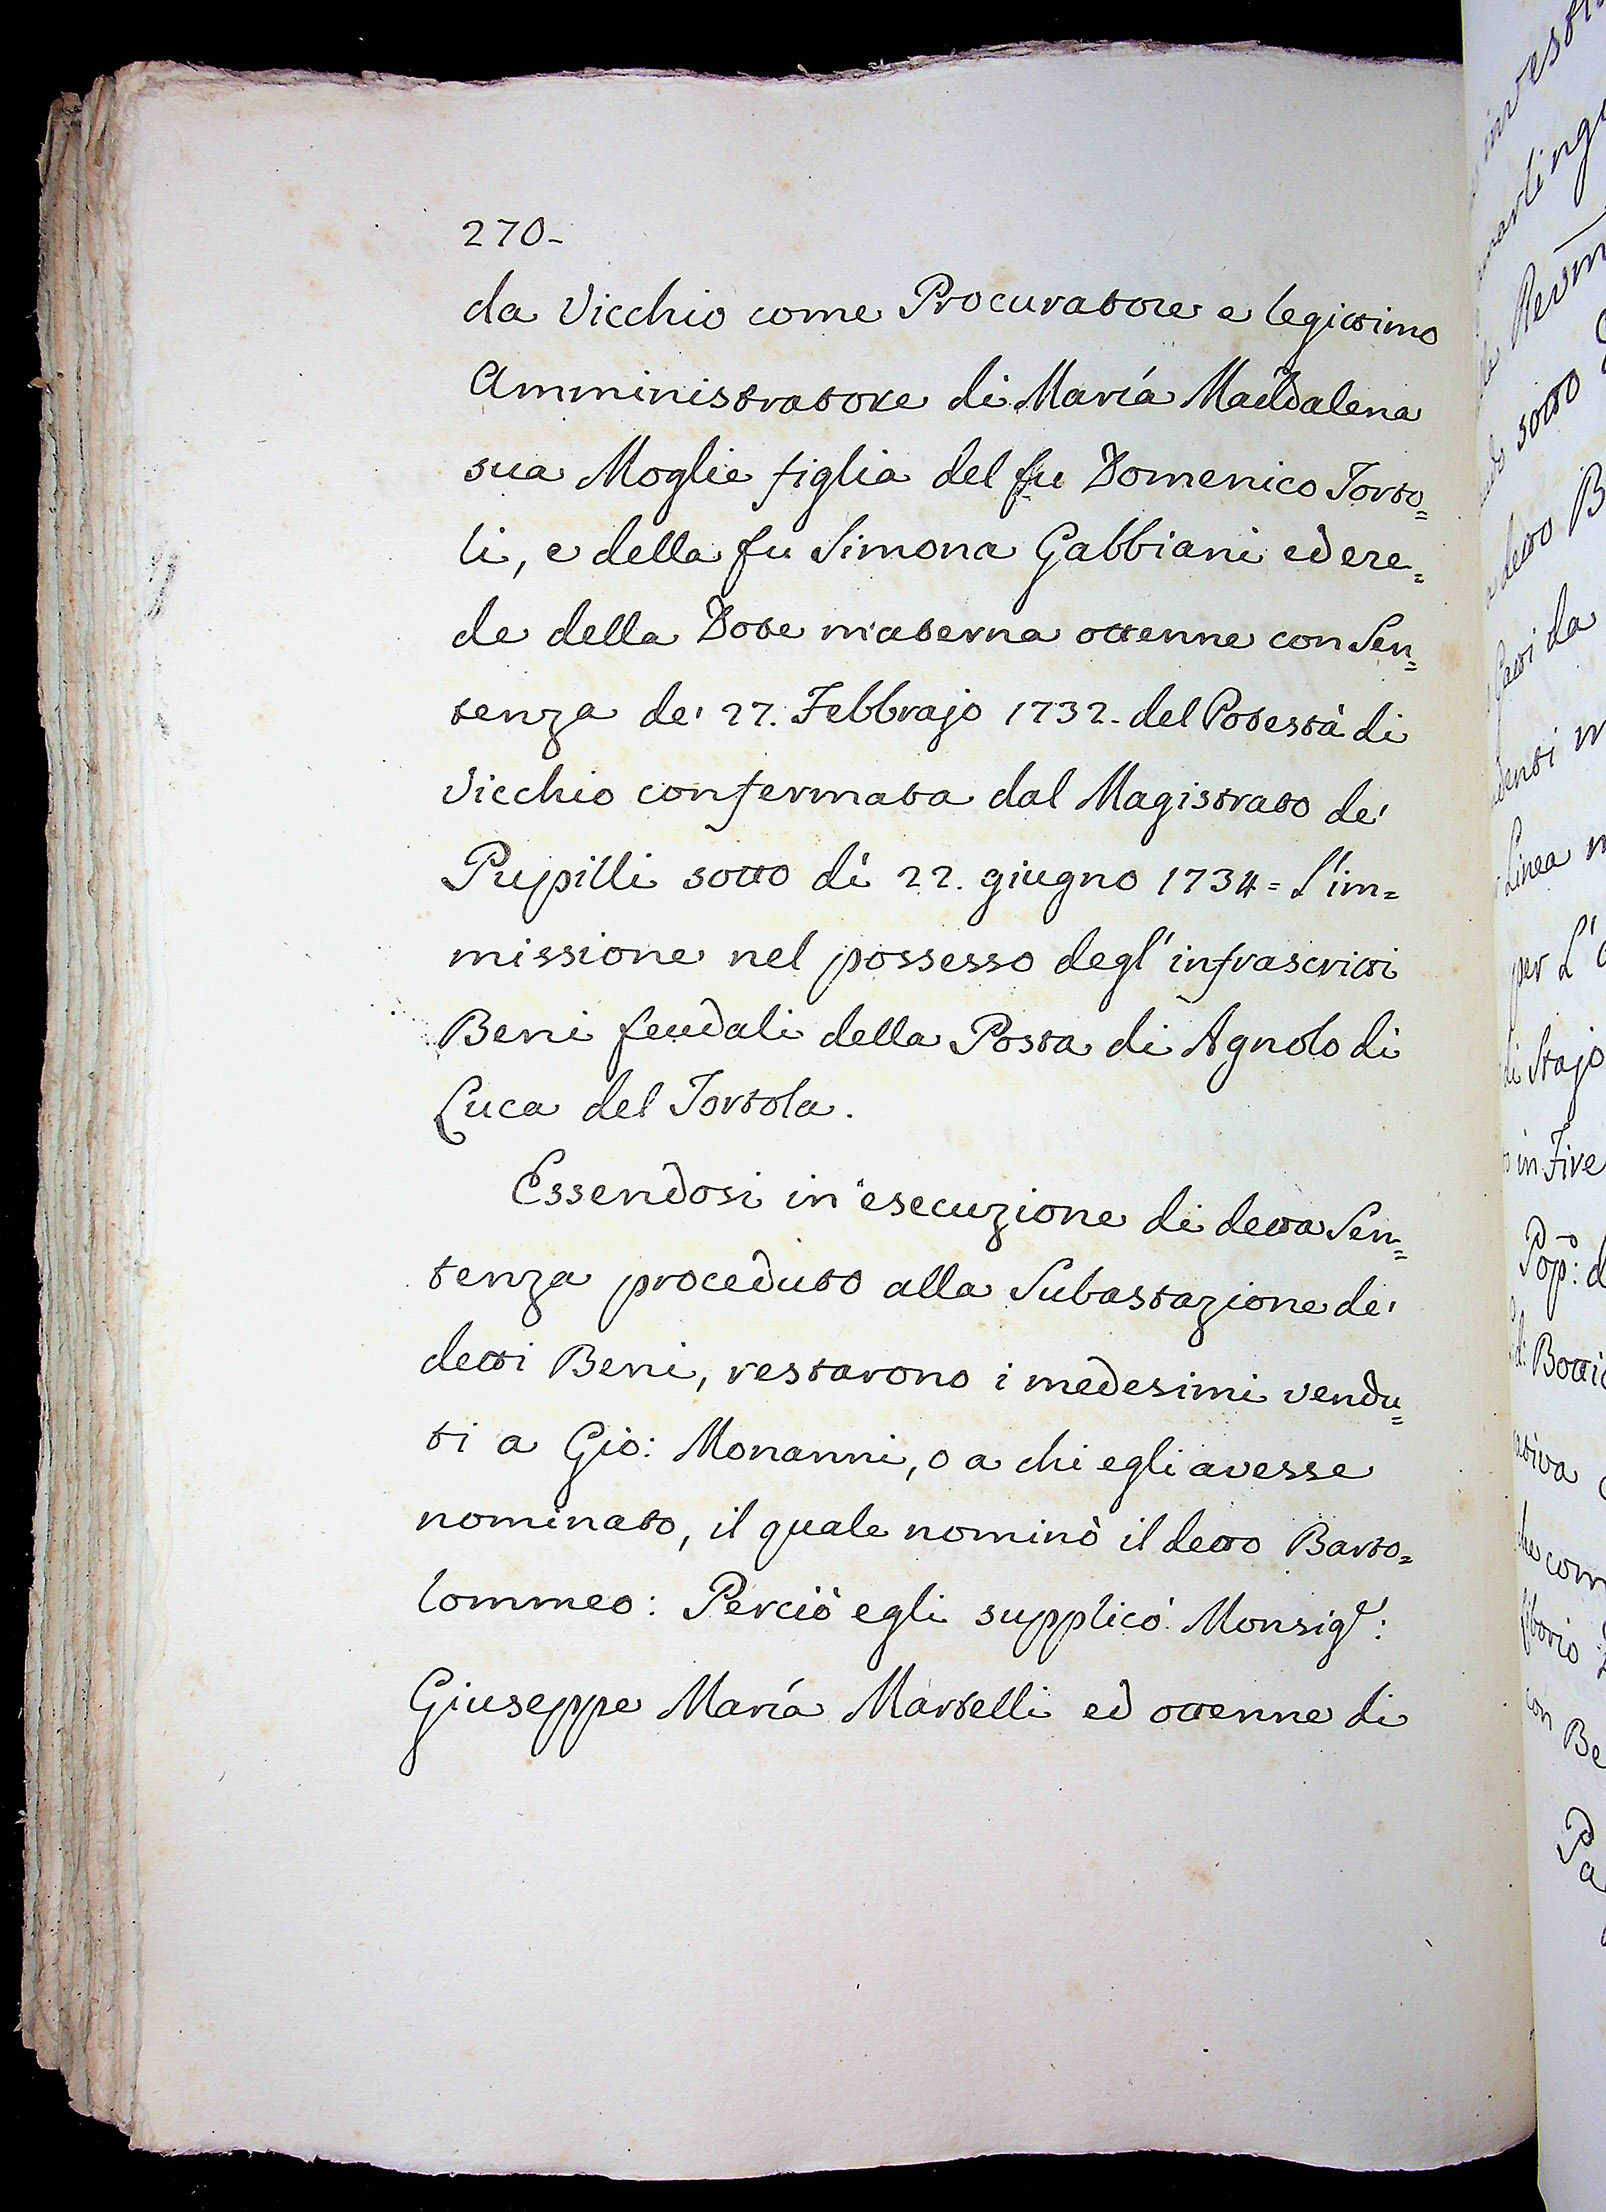 270-
da Vicchio come Procuratore e legittimo
Amministratore di María Maddalena
sua Moglie figlia del fu Domenico Torto=
li, e della fu Simona Gabbiani ed ere=
de della Dote materna ottenne con Sen=
tenza de' 27. Febbrajo 1732. del Potestà di
Vicchio confermata dal Magistrato de'
Pupilli sotto dì 22. giugno 1734 = l'im=
missione nel possesso degl'infrascritti
Beni feudali della Posta di Agnolo di
Luca del Tortola.
Essendosi in esecuzione di detta Sen=
tenza proceduto alla Subastazione de'
detti Beni, restarono i medesimi vendu=
ti a Gio: Monanni, o a chi egli avesse
nominato, il quale nominò il detto Barto=
lommeo: Perciò egli supplicò Monsig.e:
Giuseppe María Martelli ed ottenne di
sotto
detto B
da
denti
Linea
per L'
di Stajo
in Fire
Pop: